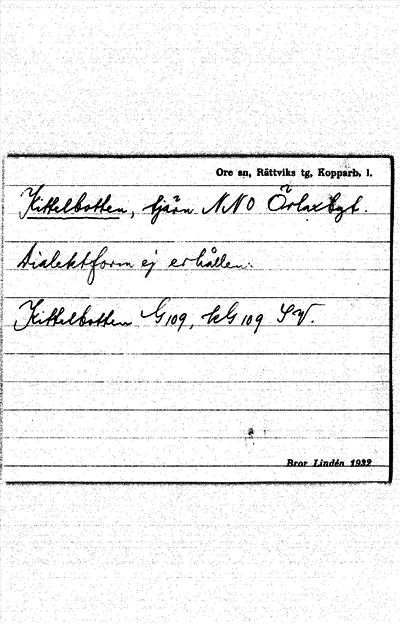 Ore sn, Rättviks tg, Kopparb. l.
Kittelbotten, tjärn NNO Örlaxbyt.
Dialektform ej erhållen.
Kittelbotten G109, kG109 SV.
Bror Lindén 1932